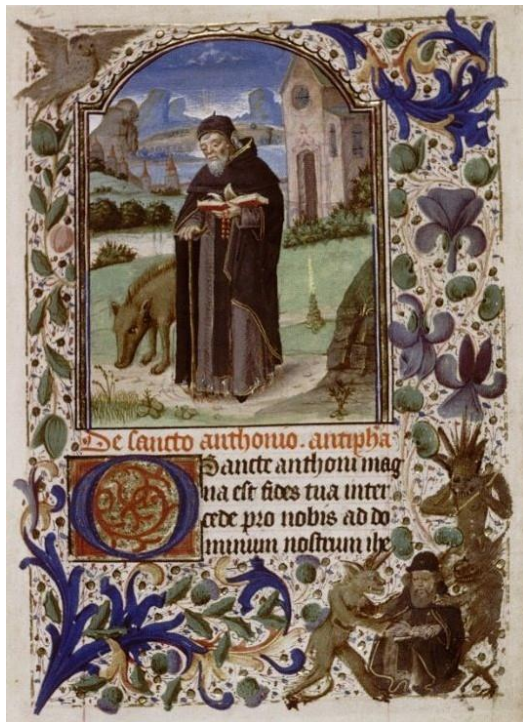 De sancto anthonio. antipha
O Sancte anthoni mag
na est fides tua inter
cede pro nobis ad do
minum nostrum ihe